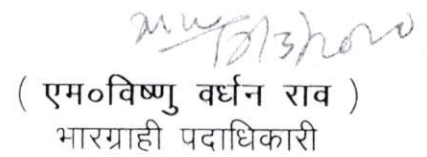 ( एम०विष्णु वर्धन राव )
भारग्राही पदाधिकारी